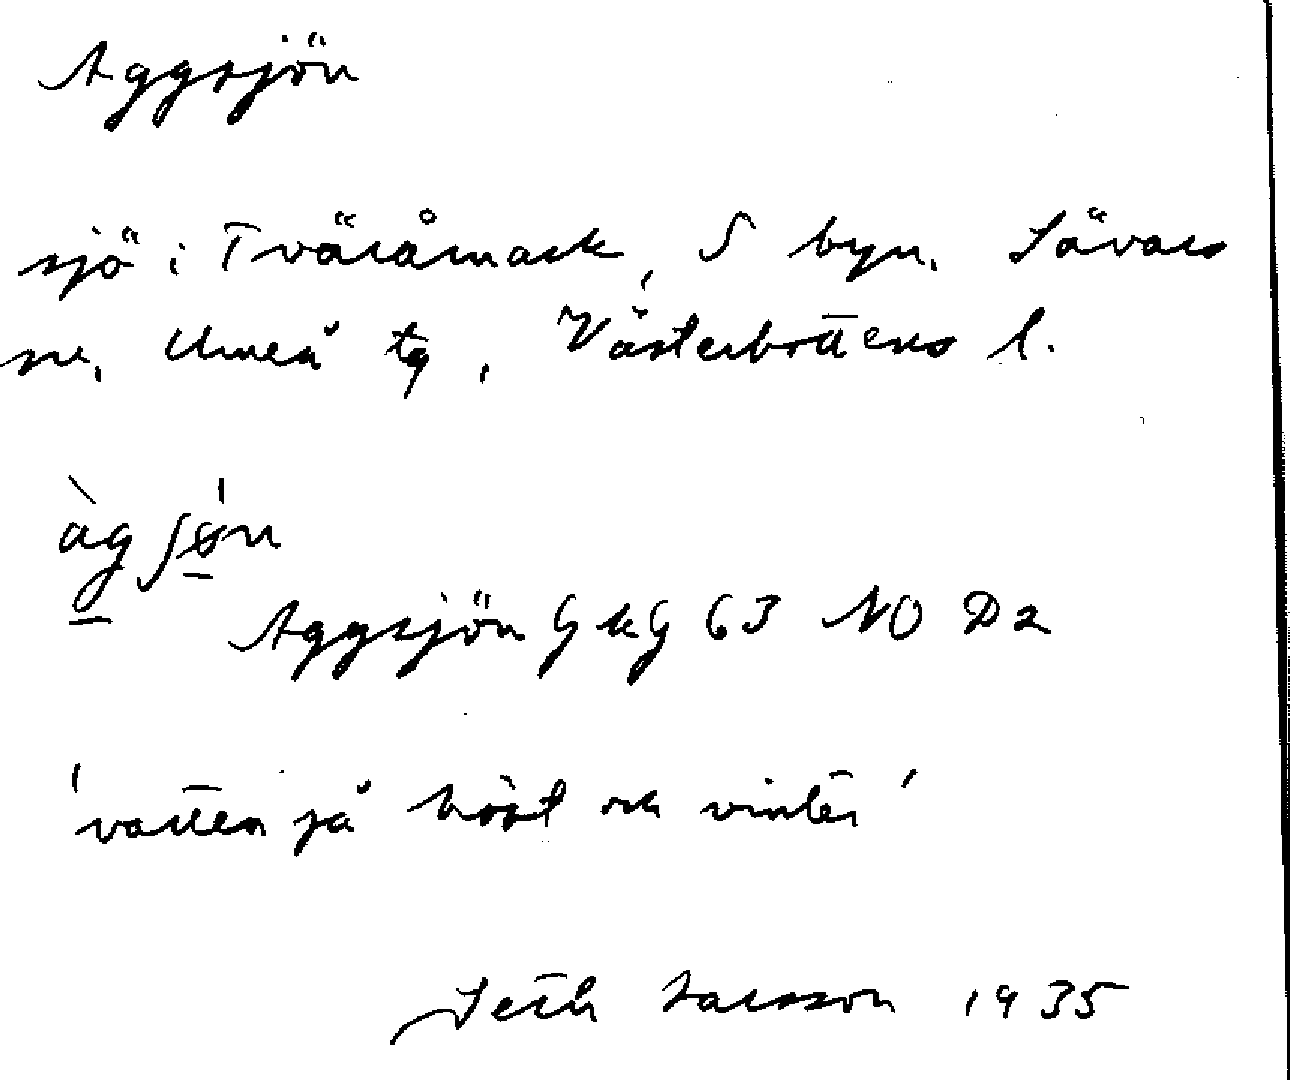 Aggsjön
sjö i Tväråmark, S byn. Sävars
sn, Umeå tg, Västerbottens l.
àgʃø̀n
Aggsjön GkG 63 NO D2
'vatten på höst och vinter'
Seth Larsson 1935